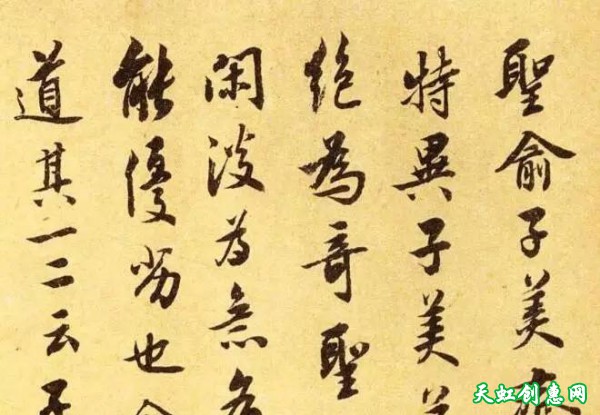 聖俞子美
特異子美
絶為奇聖
閑淡為意
能優劣也
道其一二云
天虹创意网